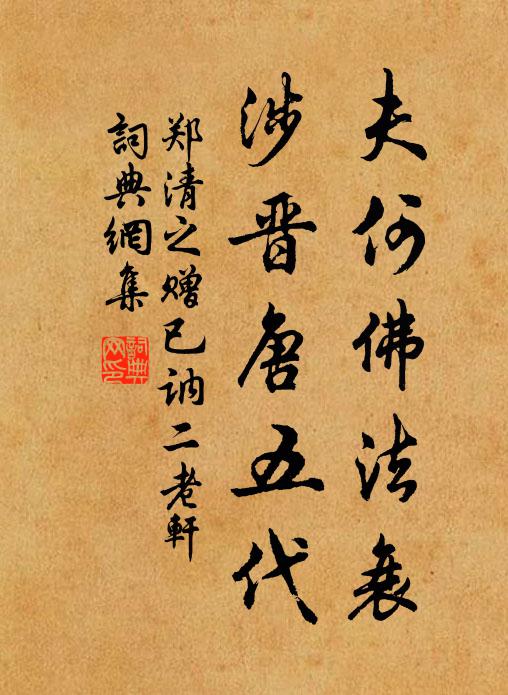 夫何佛法衰
涉晋唐五代
郑清之赠已讷二老轩
詞典網集
詞典网印